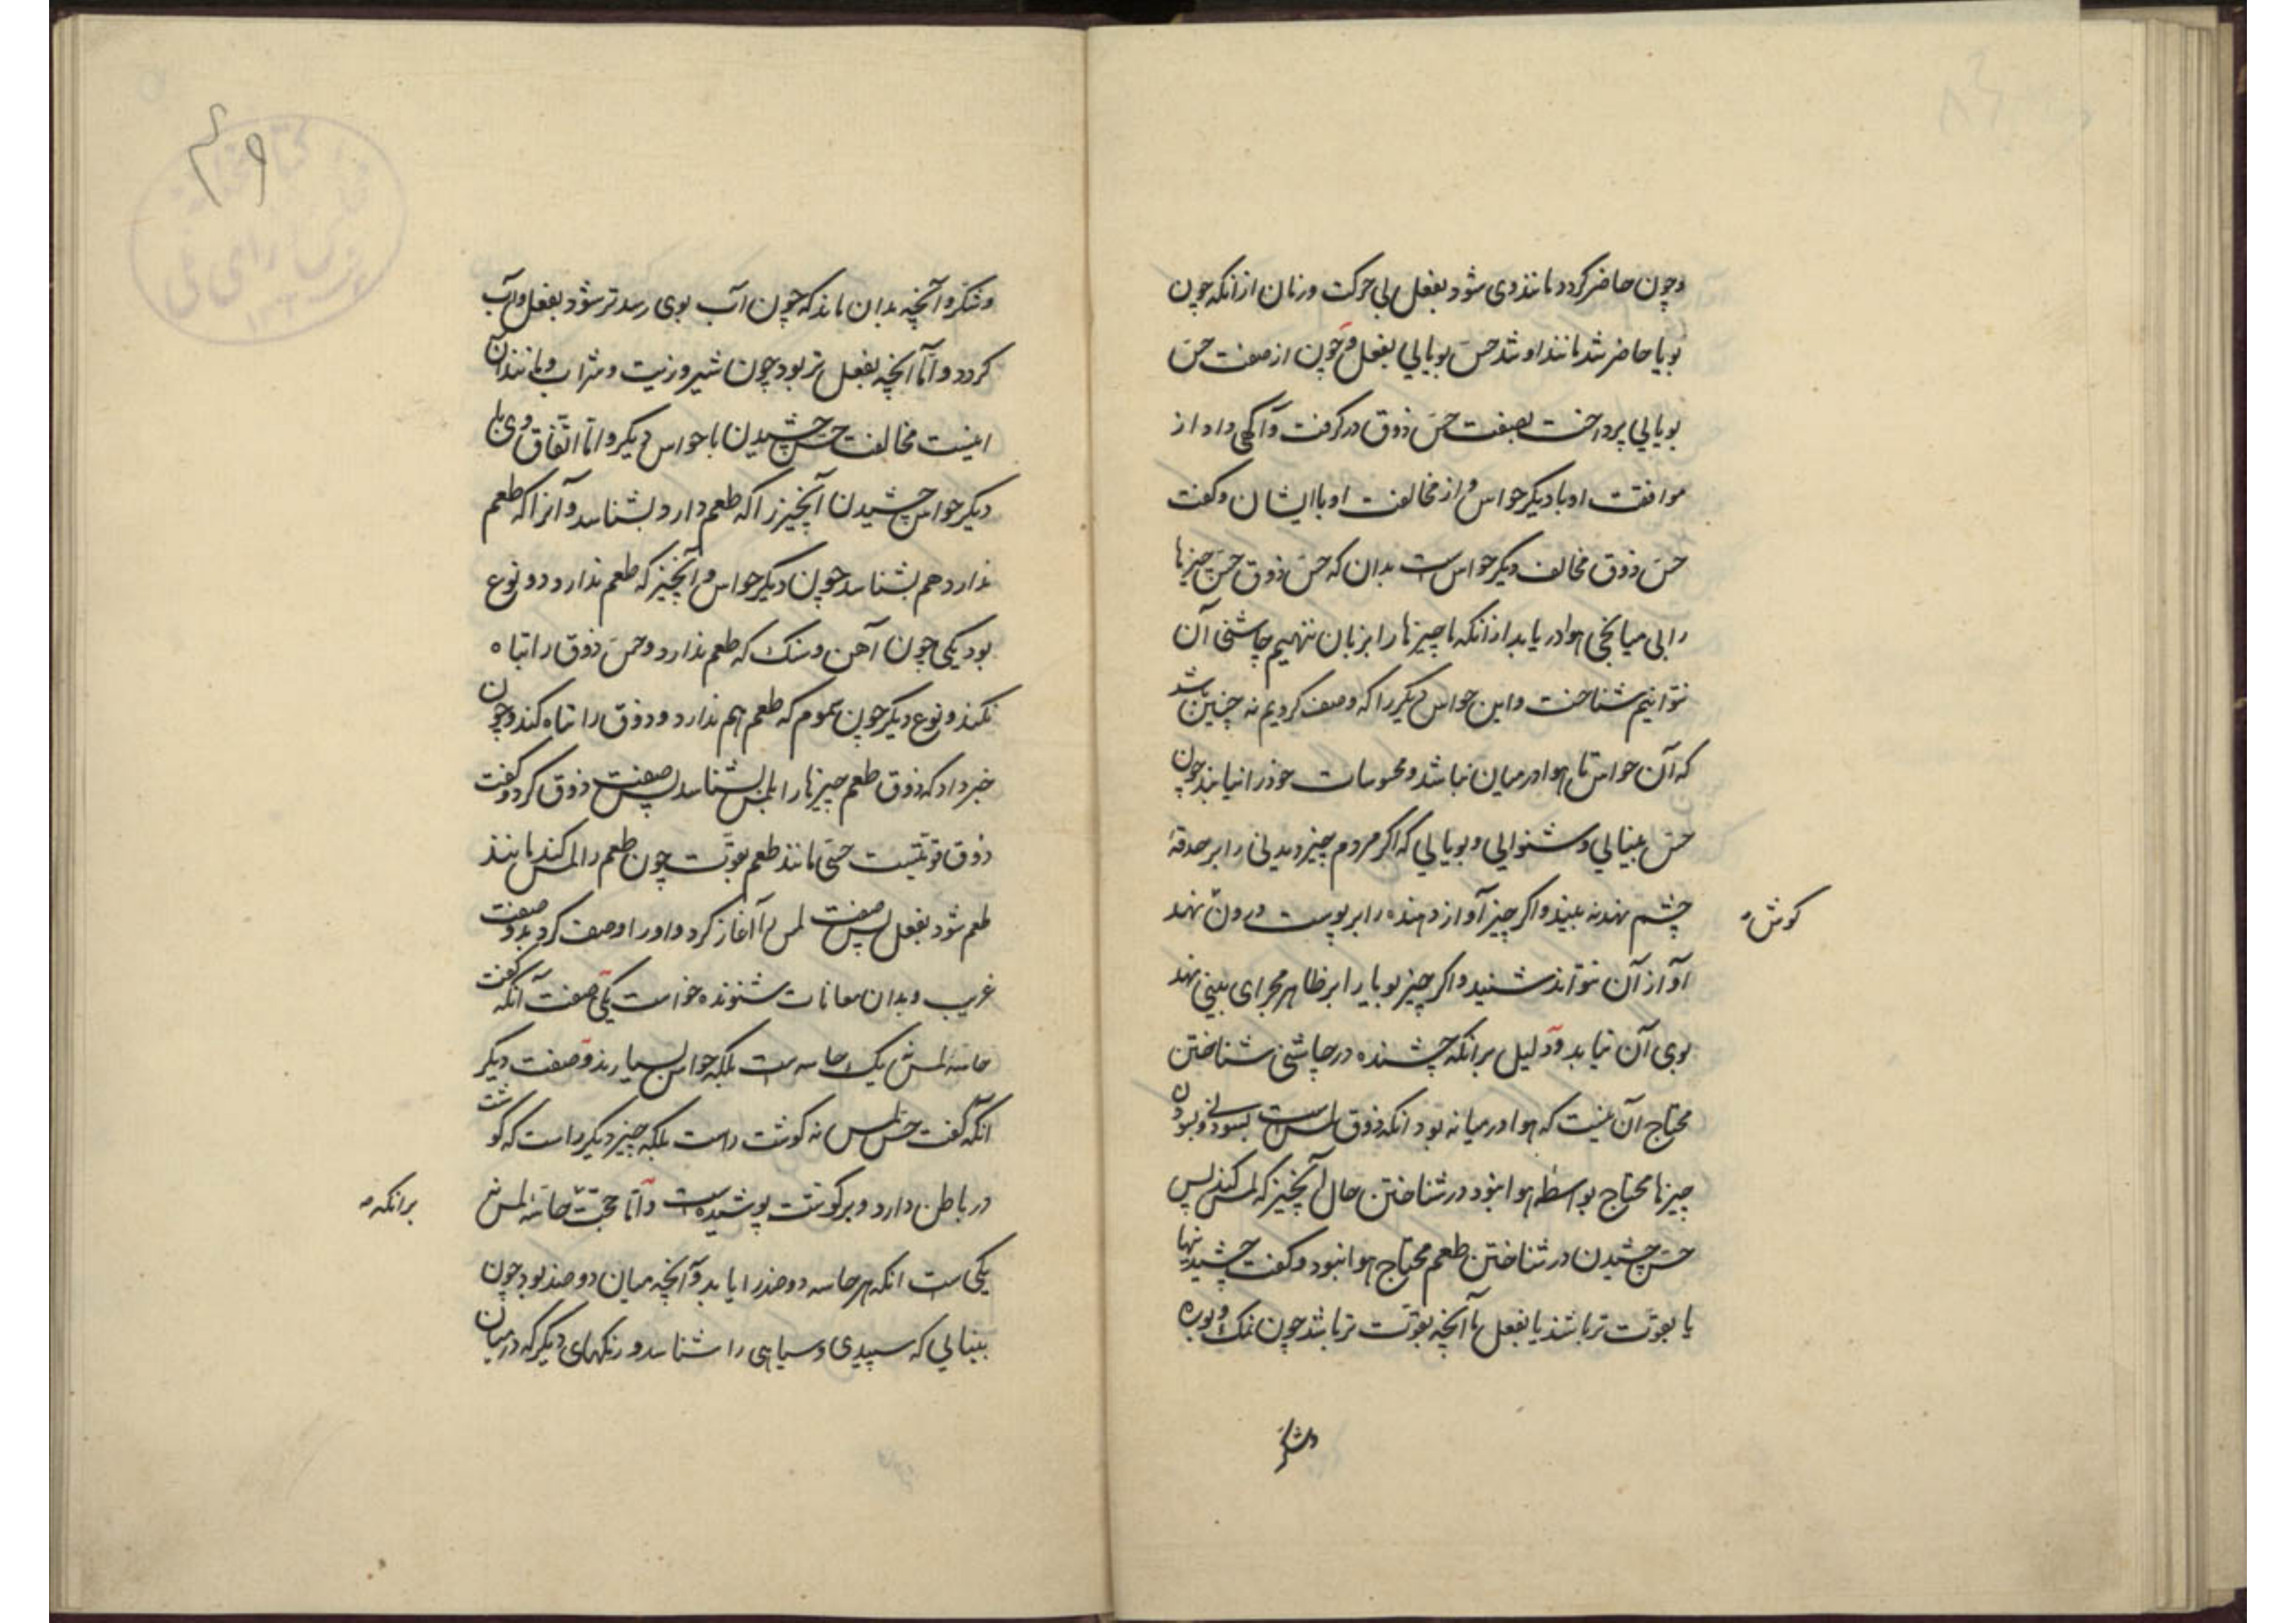 وچون حاضر كردد مانند وى شود بفعل بى حركت وزمان از انكه چون
بويا حاضر شد مانند او شد حس بويايى بفعل وچون از صفت حس
بويايى پرداخت بصفت حس ذوق در كرفت وآكهى داد از
موافقت او با ديكر حواس واز مخالفت او با ايشان وكفت
حس ذوق مخالف ديكر حواس است بدان كه حس ذوق حس چيزها
را بى ميانجى هوا دريابد از انكه تا چيزها را بر زبان ننهيم چاشنى آن
نتوانيم شناخت واين حواس ديكر را كه وصف كرديم نه چنين باشد
كه آن حواس تا هوا در ميان نباشد محسوسات خود را نيابند چون
حس بينايى وشنوايى وبويايى كه اكر مردم چيز ديدنى را بر حدقهٔ
چشم نهد نه بيند واكر چيز آواز دهنده را بر پوست درون نهد
كوش
آواز آن نتواند شنيد واكر چيز بويا را بر ظاهر مجراى بينى نهد
بوى آن نيابد ودليل بر انكه چشنده در چاشنى شناختن
محتاج آن نيست كه هوا در ميانه بود انكه ذوق لمس است بسودنى وبسودن
چيزها محتاج بواسطه هوا نبود در شناختن حال آنچيز كه لمس كند پس
حس چشيدن در شناختن طعم محتاج هوا نبود وكفت چشيدنيها
يا بقوّت تر باشند يا بفعل تا آنچه بقوّت تر باشد چون نمك وبوره
وشكر
وشكر وآنچه بدان ماند كه چون آب بوى رسد تر شود بفعل وآب
كردد وامّا آنچه بفعل تر بود چون شير وزيت وشراب ومانند آن
اينست مخالفت حس چشيدن با حواس ديكر وامّا اتّفاق وى با
ديكر حواس چشيدن آنچيز را كه طعم دارد بشناسد وآنرا كه طعم
ندارد هم بشناسد چون ديكر حواس وآنچيز كه طعم ندارد دو نوع
بود يكى چون آهن وسنك كه طعم ندارد وحس ذوق را تباه
نكند ونوع ديكر چون سموم كه طعم هم ندارد وذوق را تباه كند وچون
خبر داد كه ذوق طعم چيزها را بلمس بشناسد پس صفت ذوق كرد وكفت
ذوق قوتيست حسّى مانند طعم بقوّت چون طعم را لمس كند مانند
طعم شود بفعل پس صفت لمس را آغاز كرد واو را وصف كرد بدو صفت
غريب وبدان معانات شنونده خواست يكى صفت آنكه كفت
حاسهٔ لمس نه يك حاسه است بلكه حواس بسيارند وصفت ديكر
آنكه كفت حس لمس نه كوشت راست بلكه چيز ديكر راست كه كوشت
در باطن دارد وبر كوشت پوشيده است وامّا حجّت حاسّهٔ لمس نه
بر انكه
يكى است انكه هر حاسه دو ضد را يابد وآنچه ميان دو ضد بود چون
بينايى كه سپيدى وسياهى را شناسد ورنكهاى ديكر كه در ميان